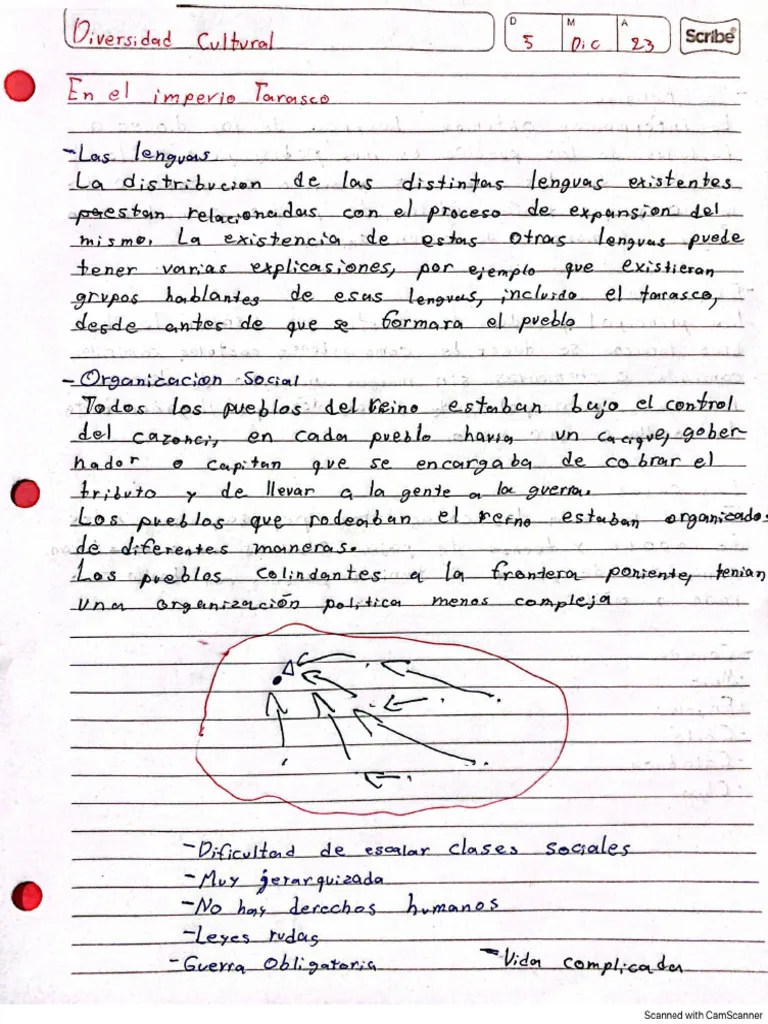 Diversidad Cultural
D M A
5 Dic 23
Scribe
En el imperio Tarasco
- Las lenguas
La distribucion de las distintas lenguas existentes
estan relacionadas con el proceso de expansion del
mismo. La existencia de estas otras lenguas puede
tener varias explicasiones, por ejemplo que existieran
grupos hablantes de esas lenguas, incluido el tarasco,
desde antes de que se formara el pueblo
- Organizacion Social
Todos los pueblos del reino estaban bajo el control
del cazonci, en cada pueblo havia un cacique, gober-
nador o capitan que se encargaba de cobrar el
tributo y de llevar a la gente a la guerra.
Los pueblos que rodeaban el reino estaban organizados
de diferentes maneras.
Los pueblos colindantes a la frontera poniente, tenian
una organización politica menos compleja
- Dificultad de escalar clases sociales
- Muy jerarquizada
- No hay derechos humanos
- Leyes rudas
- Guerra Obligatoria - Vida complicada
Scanned with CamScanner